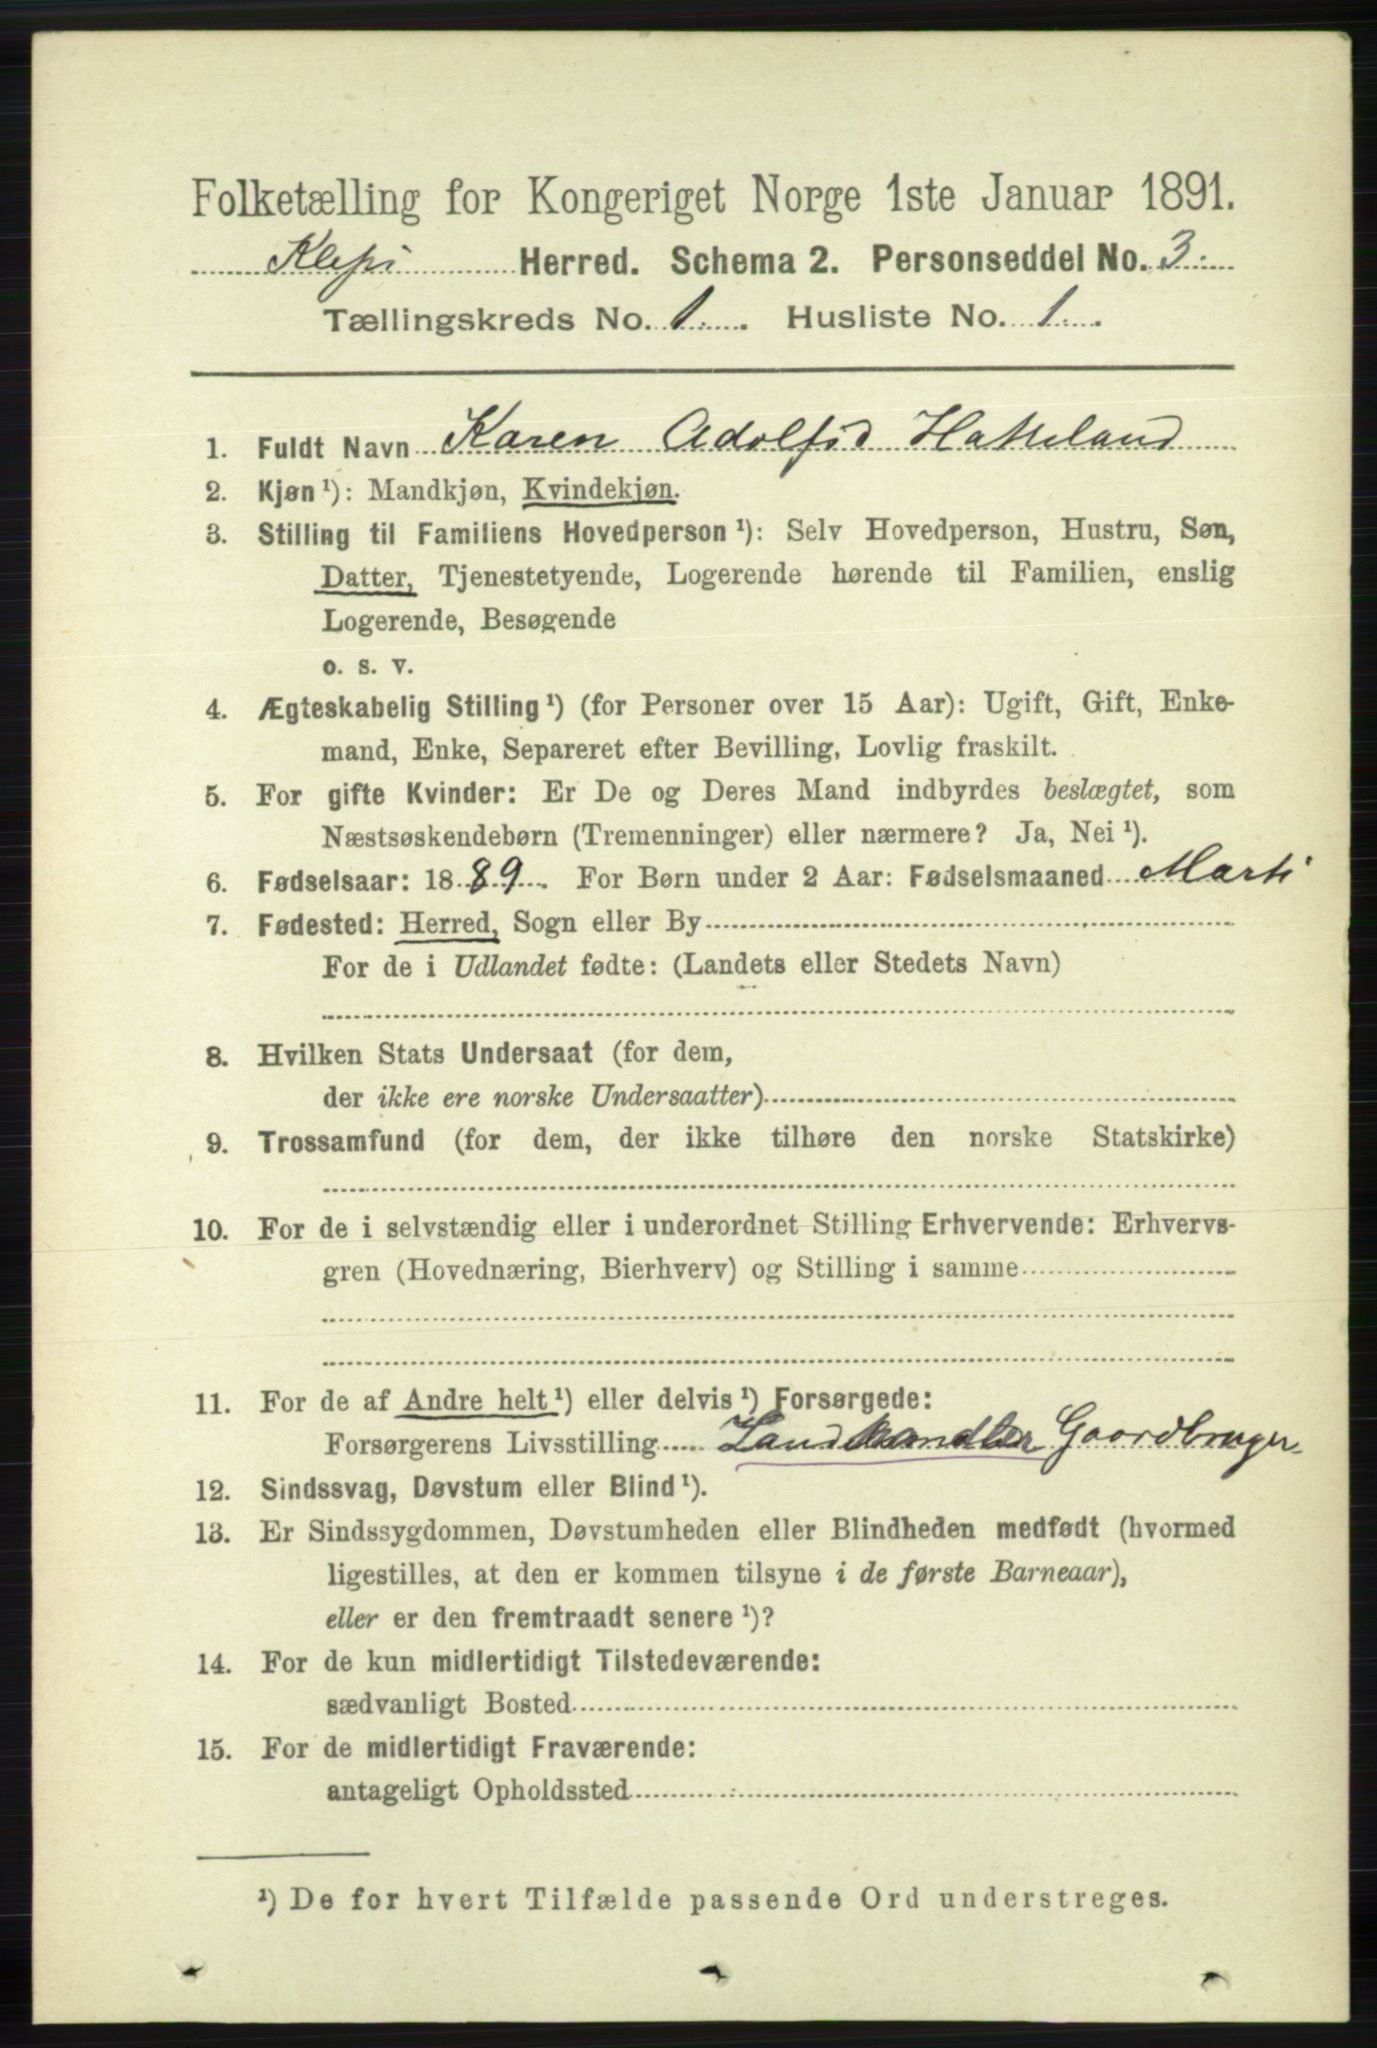 Folketælling for Kongeriget Norge 1ste Januar 1891.
Klepp Herred. Schema 2. Personseddel No. 3
Tællingskreds No. 1. Husliste No. 1.
1. Fuldt Navn Karen Adolfid Hatteland
2. Kjøn ¹): Mandkjøn, Kvindekjøn.
3. Stilling til Familiens Hovedperson ¹): Selv Hovedperson, Hustru, Søn,
Datter, Tjenestetyende, Logerende hørende til Familien, enslig
Logerende, Besøgende
o. s. v.
4. Ægteskabelig Stilling ¹) (for Personer over 15 Aar): Ugift, Gift, Enke-
mand, Enke, Separeret efter Bevilling, Lovlig fraskilt.
5. For gifte Kvinder: Er De og Deres Mand indbyrdes beslægtet, som
Næstsøskendebørn (Tremenninger) eller nærmere? Ja, Nei ¹).
6. Fødselsaar: 1889. For Børn under 2 Aar: Fødselsmaaned Marts
7. Fødested: Herred, Sogn eller By
For de i Udlandet fødte: (Landets eller Stedets Navn)
8. Hvilken Stats Undersaat (for dem,
der ikke ere norske Undersaatter)
9. Trossamfund (for dem, der ikke tilhøre den norske Statskirke)
10. For de i selvstændig eller i underordnet Stilling Erhvervende: Erhvervs-
gren (Hovednæring, Bierhverv) og Stilling i samme
11. For de af Andre helt ¹) eller delvis ¹) Forsørgede:
Forsørgerens Livsstilling Landhandler Gaardbruger
12. Sindssvag, Døvstum eller Blind ¹).
13. Er Sindssygdommen, Døvstumheden eller Blindheden medfødt (hvormed
ligestilles, at den er kommen tilsyne i de første Barneaar),
eller er den fremtraadt senere ¹)?
14. For de kun midlertidigt Tilstedeværende:
sædvanligt Bosted
15. For de midlertidigt Fraværende:
antageligt Opholdssted
¹) De for hvert Tilfælde passende Ord understreges.